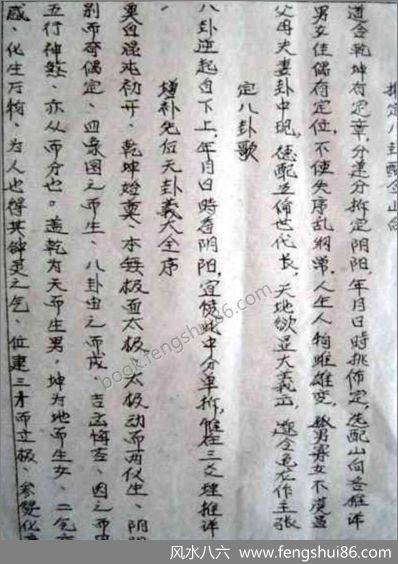 定八卦合山向
道合乾坤有定章，分建分拆定阴阳，年月日時挑佈定，先配山向若推详
男女佳偶有定位，不使失序乱纲常，人生人物雌雄变，鳏男寡女不
父母夫妻卦中现，德配五倫世代长，天地欲呈大義
定八卦歌
八卦逆起自下上，年月日時看阴阳，宜從此中分单拆，三爻理推详
增补先后天卦義大全序
混沌初开，乾坤始奠，本無极而太极，太极动而两仪生，阴阳
别而奇偶定，四象因之而生，八卦由之而成，吉凶悔吝，因之而
五行神煞，亦从而分也。盖乾为天而生男。坤为地而生女，二气交
感，化生万物，为人也得其鍾灵之气，位建三才而立极，参赞化育
book.fengshui86.com
风水八六 www.fengshui86.com